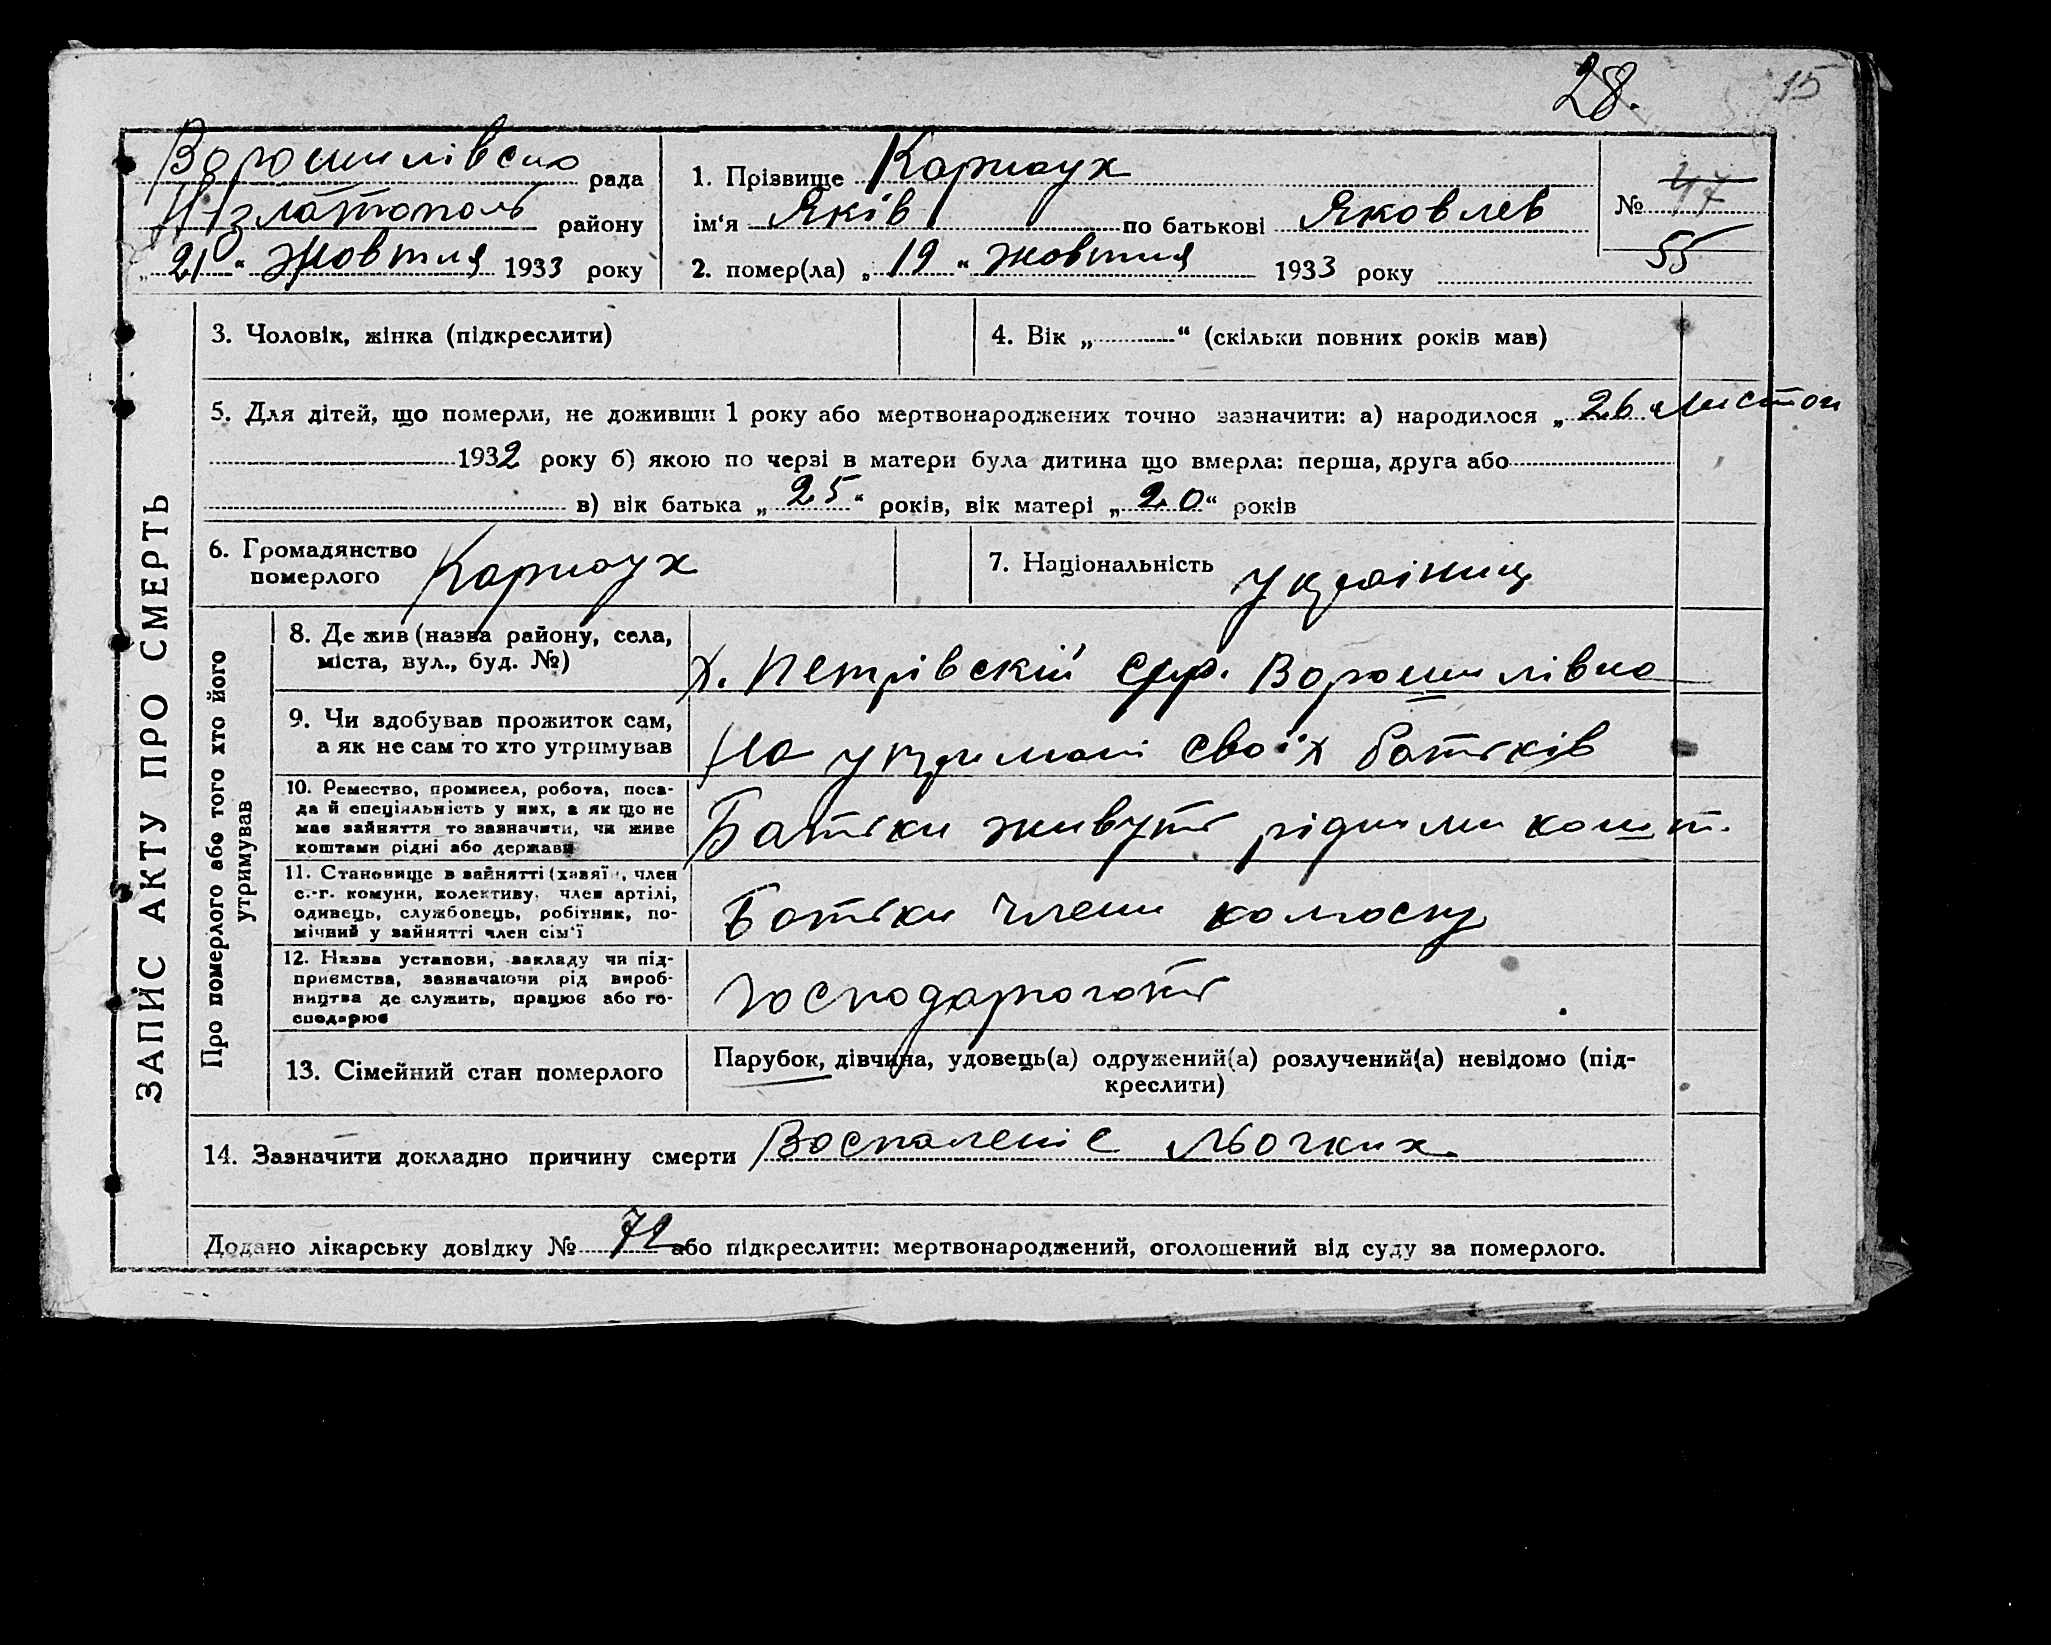 28. 15
Ворошилівська рада
Н-Златополь району
„21“ Жовтня 1933 року
1. Прізвище Карнаух
ім‘я Яків по батькові Яковлев
2. помер(ла) „19“ жовтня 1933 року
№ 47
55
ЗАПИС АКТУ ПРО СМЕРТЬ
3. Чоловік, жінка (підкреслити)
4. Вік „ “ (скільки повних років мав)
5. Для дітей, що померли, не доживши 1 року або мертвонароджених точно зазначити: а) народилося „ 26 листоп
1932 року б) якою по черзі в матери була дитина що вмерла: перша, друга або
в) вік батька „25“ років, вік матері „20“ років
6. Громадянство
померлого Карнаух
7. Національність українц
Про померлого або того хто його
утримував
8. Де жив (назва району, села,
міста, вул., буд. №)
х. Петрівскій срр. Ворошилівка
9. Чи здобував прожиток сам,
а як не сам то хто утримував
На утримані своїх батьків
10. Ремество, промисел, робота, поса-
да й спеціяльність у них, а як що не
має зайняття то зазначити, чи живе
коштами рідні або держави
Батьки живуть рідними кошт.
11. Становище в зайнятті (хазяїн, член
с.-г. комуни, колективу, член артілі,
одинець, службовець, робітник, по-
мічний у зайнятті член сім‘ї
Батьки члени колгоспу
12. Назва установи, закладу чи під-
приємства, зазначаючи рід вироб-
ництва де служить, працює або го-
сподарює
13. Сімейний стан померлого
Парубок, дівчина, удовець(а) одружений(а) розлучений(а) невідомо (під-
креслити)
14. Зазначити докладно причину смерти Воспаленіє льогких
Додано лікарську довідку № 72 або підкреслити: мертвонароджений, оголошений від суду за померлого.